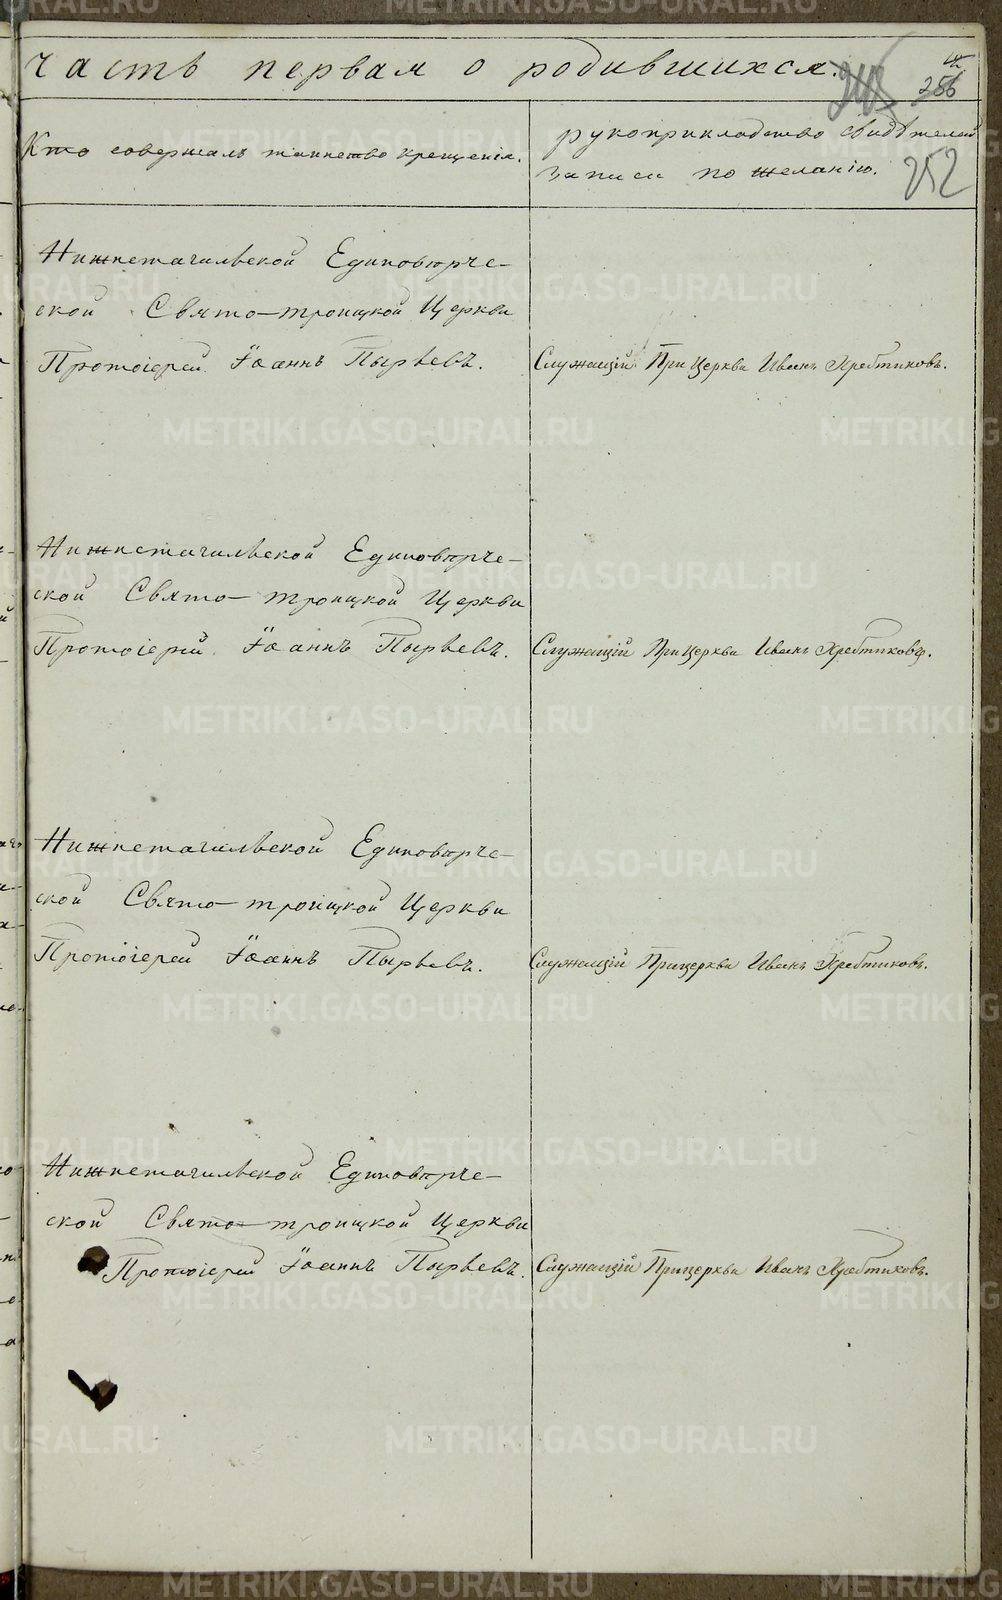 часть первая о родившихся.
256
252
Кто совершалъ таинство крещенія.
рукоприкладство свидѣтелей
записи по желанію.
Нижнетагильской Единовѣрче-
ской Свято-троицкой Церкви
Протоіерей Іоаннъ Пырьевъ.
Служащій При Церкви Иванъ Хребтиковъ.
Нижнетагильской Единовѣрче-
ской Свято-троицкой Церкви
Протоіерей Іоаннъ Пырьевъ.
Служащій При Церкви Иванъ Хребтиковъ.
Нижнетагильской Единовѣрче-
ской Свято-троицкой Церкви
Протоіерей Іоаннъ Пырьевъ.
Служащій При церкви Иванъ Хребтиковъ.
Нижнетагильской Единовѣрче-
ской Свято-троицкой Церкви
Протоіерей Іоаннъ Пырьевъ.
Служащій При церкви Иванъ Хребтиковъ.
METRIKI.GASO-URAL.RU